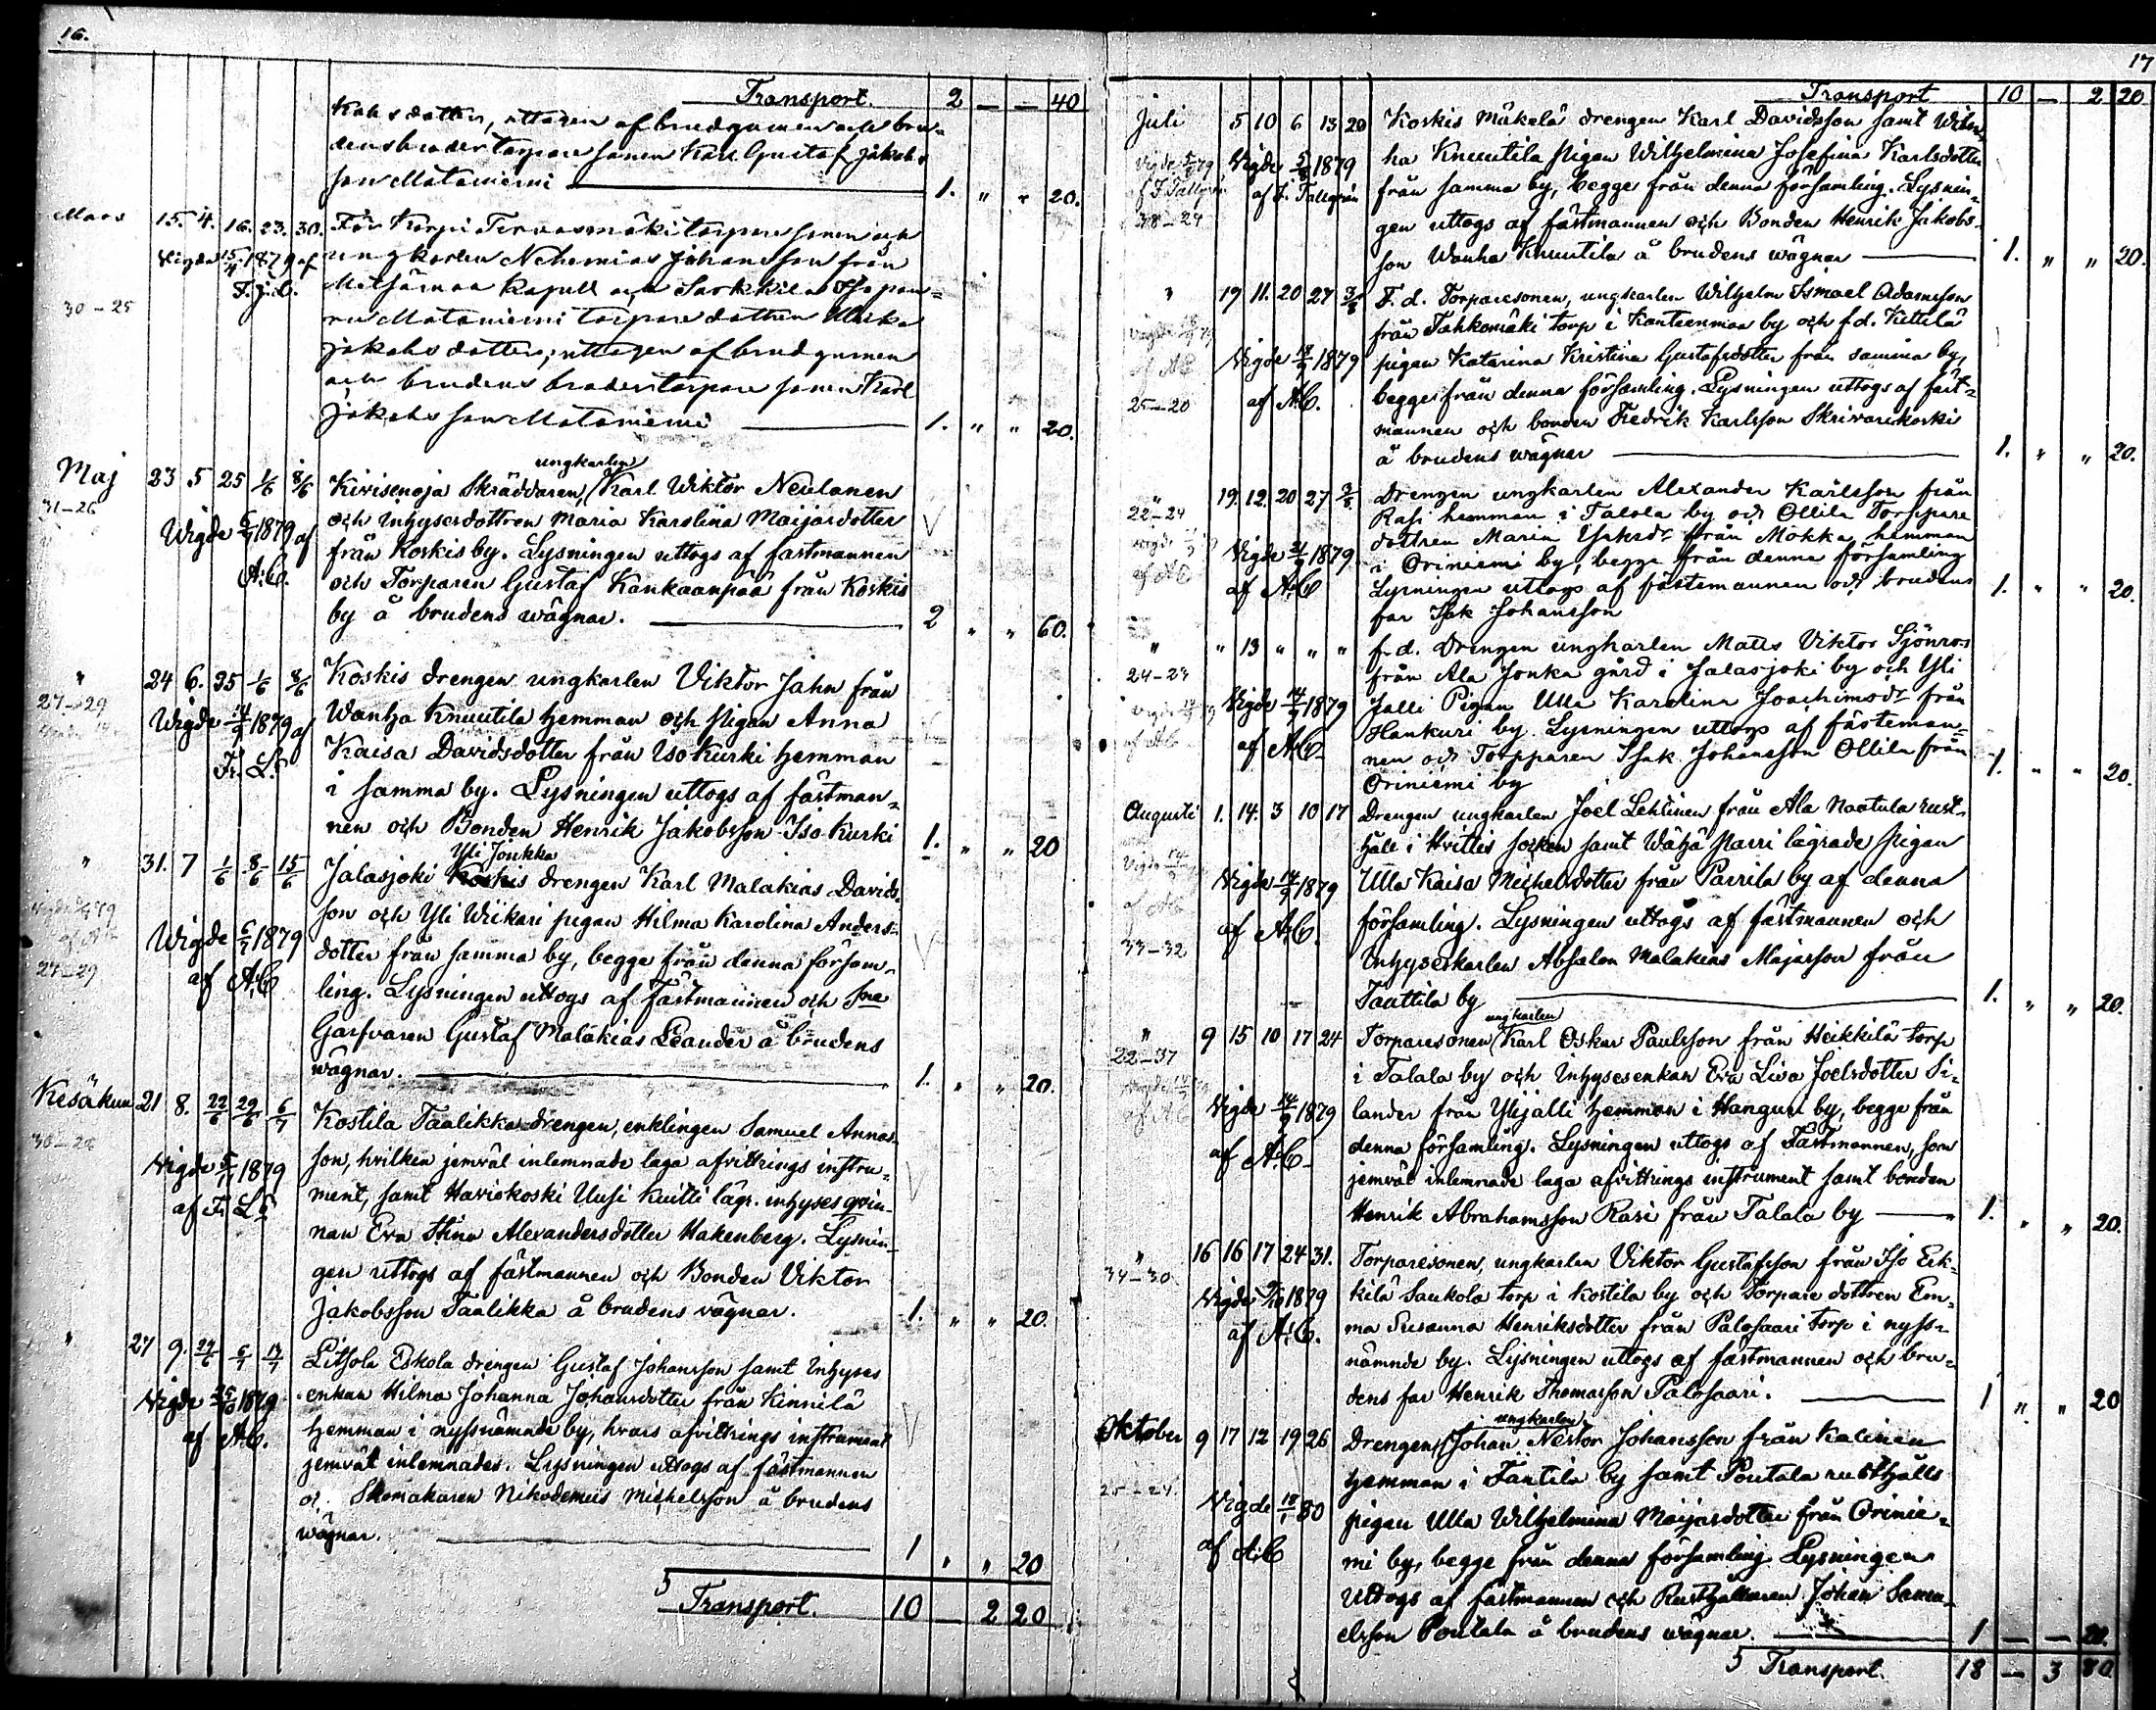 16.
Transport. 2 — — 40
Kabsdotter, uttagen af brudgumen och bru-
densbroder torpare sonen Karl Gustaf Jakobs
son Mataniemi 1. " " 20.
Mars 15. 4. 16. 23. 30. För Korpi Tervasmäki torpare sonen och
Vigda 15/4 1879 af ungkarlen Nehemias Johansson från
F. J. L. Kapell och Sarkkila
30-25 Mataniemi torpare dottren Ulrika
Jakobsdotter; uttagen af brudgumen
och brudens broder torpare sonen Karl
Jakobsson Mataniemi 1. " " 20.
ungkarlen
Maj 23 5 25 1/6 8/6 Kivisenoja Skräddaren, Karl Wiktor Neulanen
31-26 och inhysesdottren Maria Karolina Maijasdotter
Wigde 6/7 1879 af från Koskis by. Lysningen uttogs af fästmannen
A. C. och Torparen Gustaf Kankaanpää från Koskis
by å brudens wägnar. 2 " " 60.
" 24 6. 25 1/6 8/6 Koskis drengen ungkarlen Viktor Jahn från
27-29 Wanha Knuutila hemman och pigan Anna
Wigde 14/9 1879 af Kaisa Davidsdotter från Iso Kurki hemman
Fr. L. i samma by. Lysningen uttogs af fästman-
nen och Bonden Henrik Jakobsson Iso Kurki 1. " " 20
Yli Jonkka
" 31. 7 1/6 8/6 15/6 Jalasjoki Koskis drengen Karl Malakias Davids-
son och Yli Wiikari pigan Hilma Karolina Anders-
Wigde 6/7 1879 dotter från samma by, begge från denna försam-
af A. C. ling. Lysningen uttogs af fästmannen och Sne
27-29 Garfvaren Gustaf Malakias Leander å brudens
wägnar. 1. " " 20.
Kesäkuu 21 8. 22/6 29/6 6/7 Kostila Taalikka drengen, enklingen Samuel Annas-
30-28 son, hvilken jemväl inlemnade laga afvittrings instru-
Wigde 1879 ment, samt Haviokoski Uusi Kuitti lägr. inhysesqvin-
af Fr. L. nan Eva Stina Alexandersdotter Hakenberg. Lysnin-
gen uttogs af fästmannen och Bonden Viktor
Jakobsson Taalikka å brudens vägnar. 1. " " 20.
" 27 9. 29/6 6/7 13/7 Litsola Eskola drengen Gustaf Johansson samt Inhyses
Wigde 1879 enkan Hilma Johanna Johansdotter från Kinnilä
af A. C. hemman i nyssnämnde by, hvars afvittrings instrument
jemväl inlemnades. Lysningen uttogs af fästmannen
oc. Skomakaren Nikodemus Michelsson å brudens
wägnar. 1 " " 20
5 Transport. 10 — 2 20
17
Transport 10 — 2 20
Juli 5 10 6 13 20 Koskis Mäkelä drengen Karl Davidsson samt Wan-
Wigde 1879 ha Knuutila pigan Wilhelmina Josefina Karlsdotter
af F. Tallgrén från samma by, begge från denna församling. Lysnin-
38-24 gen uttogs af fästmannen och Bonden Henrik Jakobs-
son Wanha Knuutila å brudens wägnar 1. " " 20.
" 19 11. 20 27 3/8 F. d. Torparesonen, ungkarlen Wilhelm Ismael Adamsson
från Tahkomäki torp i Kanteenmaa by och f.d. Kittilä
Wigde 1879 pigan Katarina Kristina Gustafsdotter från samma by,
25-20 af A. C. begge från denna församling. Lysningen uttogs af fäst-
mannen och bonden Fredrik Karlsson Skrivarikoski
å brudens wägnar 1. " " 20.
" 19. 12. 20 27 3/8 Drengen ungkarlen Alexander Karlsson från
22-24 Rasi hemman i Talola by och Ollila Torppare
dottren Maria Isaksdr från Mokka hemman
Wigde 21/9 1879 i Oriniemi by, begge från denna församling
af A. C. Lysningen uttogs af fästemannen och brudens 1. " " 20.
far Isak Johansson
" " 13 " " " f. d. Drengen ungkarlen Matts Viktor Sjönros
24-23 från Ala Jonka gård i Jalasjoki by och Yli
Wigde 14/9 1879 Jalli Pigan Ulla Karolina Joachimsdr från
af A. C. Hankuri by. Lysningen uttogs af fästeman-
nen och Torpparen Isak Johansson Ollila från
Oriniemi by 1. " " 20.
Augusti 1. 14. 3 10 17 Drengen ungkarlen Joel Lehtinen från Ala Naatula rust-
håll i Hvittis socken samt Wähä Parri lägrade pigan
Wigde 14/9 1879 Ulla Kaisa Michelsdotter från Parrila by af denna
af A. C. församling. Lysningen uttogs af fästmannen och
33-32 Inhyseskarlen Absalon Malakias Majasson från
Taattila by 1. " " 20.
ungkarlen
" 9 15 10 17 24 Torparesonen Karl Oskar Paulsson från Heikkilä torp
22-37 i Talala by och Inhysesenkan Eva Lisa Joelsdotter Si-
Wigde 14/9 1879 lander från Ylijalli hemman i Hanguri by, begge från
af A. C. denna församling. Lysningen uttogs af Fästmannen, som
jemväl inlemnade laga afvittrings instrument samt bonden
Henrik Abrahamsson Rasi från Talala by 1. " " 20.
" 16 16 17 24 31. Torparesonen, ungkarlen Viktor Gustafsson från Iso Erk-
34-30 kilä Saukola torp i Kostila by och Torpare dottren Em-
Wigde 1879 ma Susanna Henriksdotter från Palosaari torp i nyss-
af A. C. nämnde by. Lysningen uttogs af fästmannen och bru-
dens far Henrik Thomasson Palosaari. 1 " " 20
ungkarlen
Oktober 9 17 12 19 26 Drengen Johan Nestor Johansson från Kalinen
hemman i Tantila by samt Poutala rusthålls
25-24. Wigde 18/1 80 pigan Ulla Wilhelmina Maijasdotter från Orinie-
af A. C mi by, begge från denna församling Lysningen
uttogs af fästmannen och Rusthållaren Johan Samu-
elsson Poutala å brudens wägnar. 1 — — 20.
5 Transport. 18 — 3 80